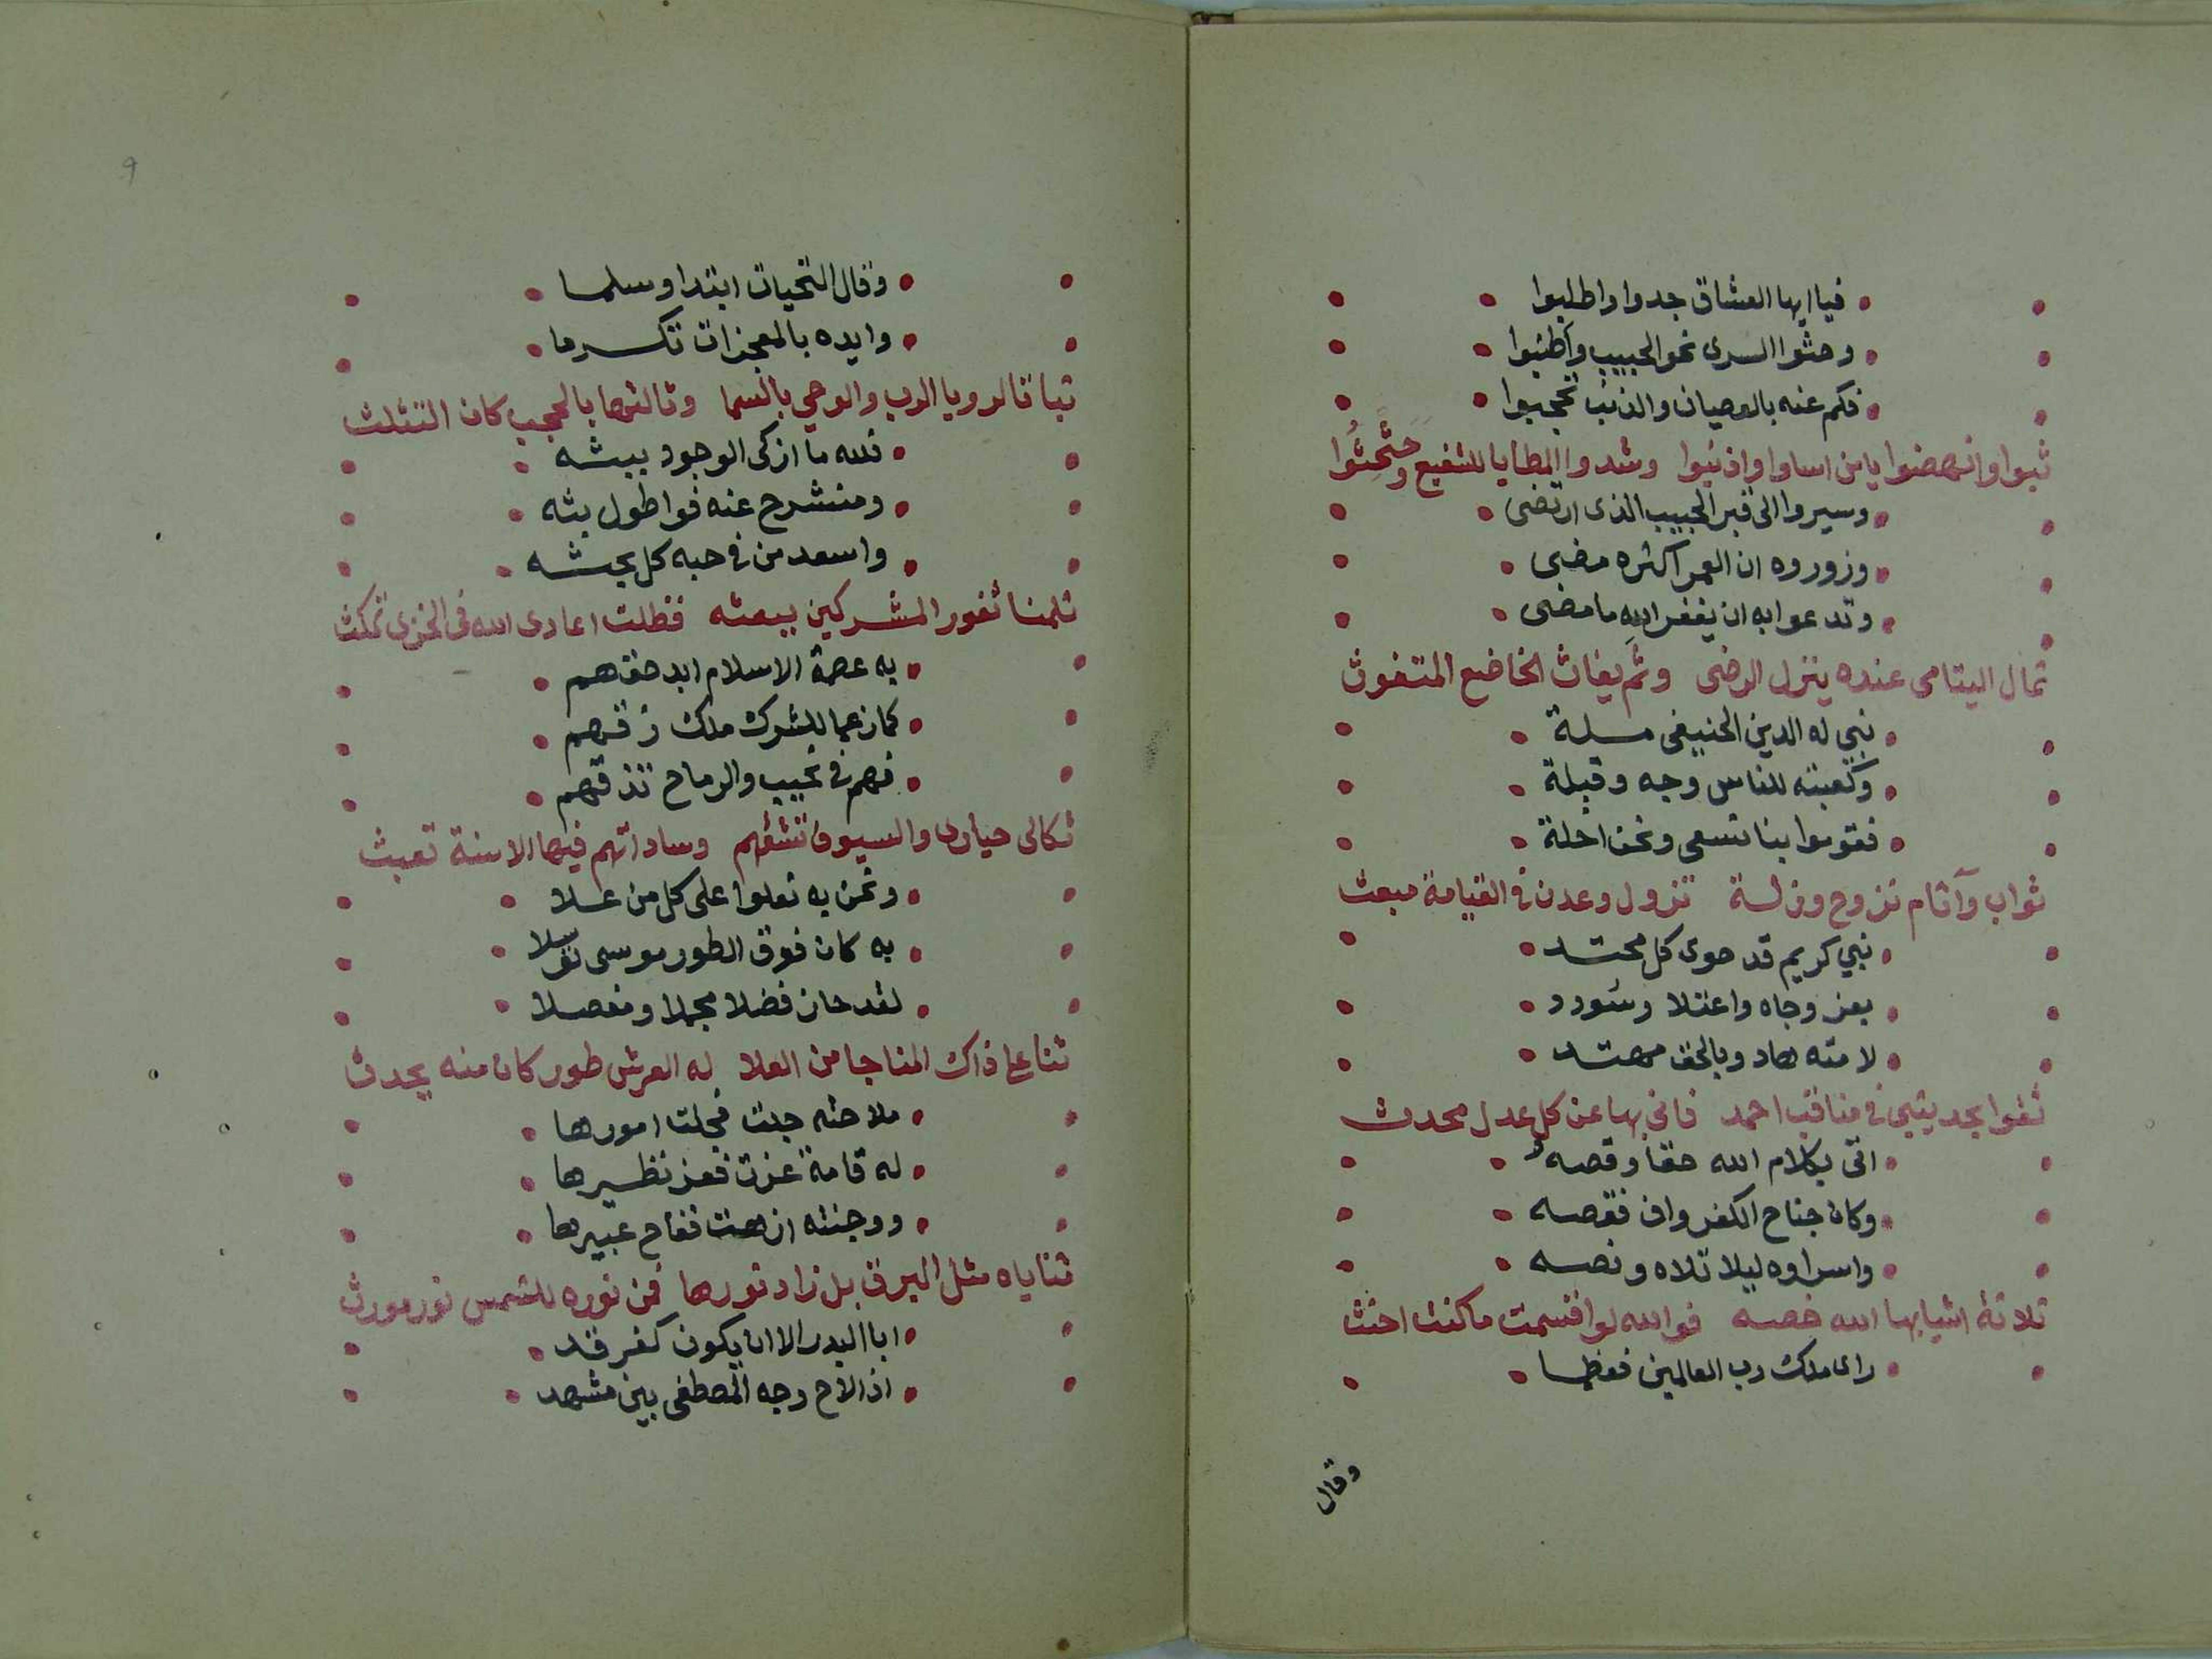 فيا ايها العشاق جدوا واطلبوا
وحثوا السرى نحو الحبيب واطنبوا
فكم عنه بالعصيان والذنب تحجبوا
ثبوا وانهضوا يا من اساوا واذنبوا وشدوا المطايا للشفيع وحثحثوا
وسيروا الى قبر الحبيب الذى ارتضى
وزوروه ان العمر اكثره مضى
وتدعوا به ان يغفر الله ما مضى
ثمال اليتامى عنده ينزل الرضى وثم يغاث الخاضع المتغوث
نبي له الدين الحنيفى مسلة
وكعبته للناس وجه وقبلة
فقوموا بنا نسعى ونحن احلة
ثواب وآثام تزوح وزلة تزول وعدن فى القيامة مبعث
نبي كريم قد حوى كل محتد
بعز وجاه واعتلا وسودد
لامته هاد وبالحق مهتد
ثقوا بحديثى فى مناقب احمد فانى بها عن كل عدل محدث
اتى بكلام الله حقا وقصه
وكان جناح الكفر واف فقصه
واسراوه ليلا تلاه ونصه
ثلاثة اشيا بها الله خصه فوالله لو اقسمت ما كنت احنث
راى ملك رب العالمين فعظما
وقال
٩
وقال التحيات ابتدا وسلما
وايده بالمعجزات تكرما
ثباتا لرويا الرب والوحي بالسما وثالثها بالحجب كان التثلث
فلله ما ازكى الوجود ببثه
ومنشرح عنه فوا طول بثه
واسعد من فى حبه كل بحثه
ثلمنا ثغور المشركين ببعثه فظلت اعادى الله فى الخزى تمكث
به عصمة الاسلام ابد حقهم
كما زعما للشرك ملك زقهم
فهم فى نحيب والرماح تذقهم
ثكالى حيارى والسيوف تشقهم وساداتهم فيها الاسنة تعبث
ونحن به نعلوا على كل من علا
به كان فوق الطور موسى توسلا
لقد حاز فضلا مجملا ومفصلا
ثنا على ذاك المناجا من العلا له العرش طور كان منه يحدث
ملاحته جلت فجلت امورها
له قامة عزت فعز نظيرها
ووجنته ازهت ففاح عبيرها
ثناياه مثل البرق بل زاد نورها فمن نوره للشمس نور مورث
ابا البدر الا ان يكون كفرقد
اذ الاح وجه المصطفى بين مشهد